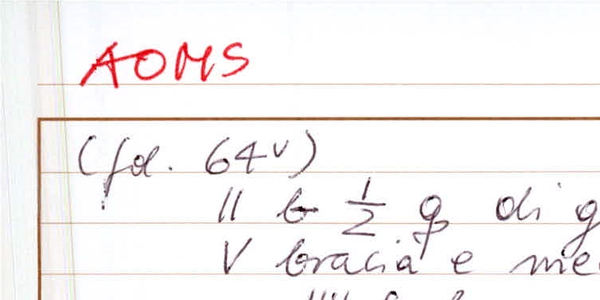 AOMS
(fol. 64v)
11 b 1/2 q di g
V bracia e me